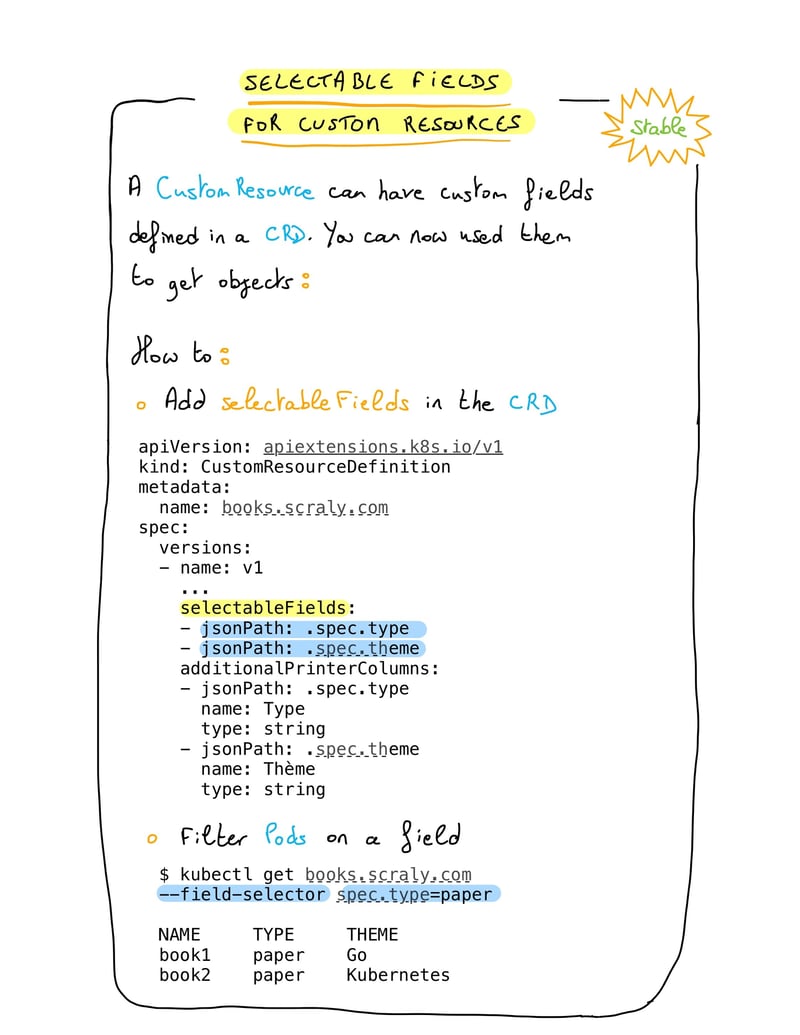 SELECTABLE FIELDS
FOR CUSTOM RESOURCES
Stable
A CustomResource can have custom fields
defined in a CRD. You can now used them
to get objects:
How to:
Add selectableFields in the CRD
apiVersion: apiextensions.k8s.io/v1
kind: CustomResourceDefinition
metadata:
  name: books.scraly.com
spec:
  versions:
  - name: v1
    ...
    selectableFields:
    - jsonPath: .spec.type
    - jsonPath: .spec.theme
    additionalPrinterColumns:
    - jsonPath: .spec.type
      name: Type
      type: string
    - jsonPath: .spec.theme
      name: Thème
      type: string
Filter Pods on a field
$ kubectl get books.scraly.com
--field-selector spec.type=paper
NAME     TYPE     THEME
book1    paper    Go
book2    paper    Kubernetes